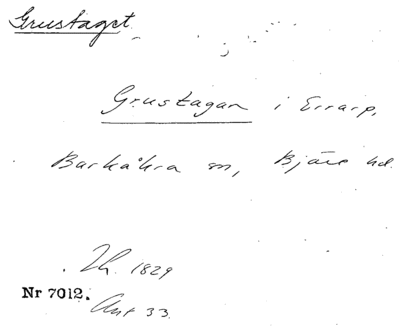 Grustaget
Grustagan i Errarp,
Barkåkra sn, Bjäre hd.
Lh. 1829
Nr 7012.
Akt 33.